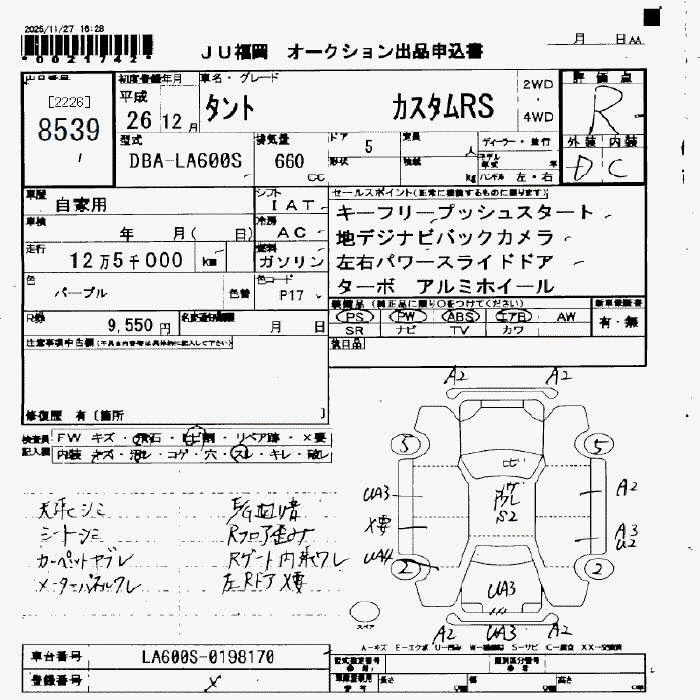 2025/11/27 16:28
*0021742*
月 日
JU福岡 オークション出品申込書
[2226]
8539
初度登録年月
平成
26 12月
車名・グレード
タント カスタムRS
2WD
4WD
評価点
R
外装 内装
D C
型式
DBA-LA600S
排気量
660
cc
ドア 5
形状
定員 人
kg
ディーラー・並行
ハンドル 左・右
車歴
自家用
シフト
IAT
車検
年 月( 日)
冷房
AC
走行
12万5千000 km
燃料
ガソリン
色
パープル
色替
色コード
P17
セールスポイント(正常に機能するものに限ります)
キーフリープッシュスタート
地デジナビバックカメラ
左右パワースライドドア
ターボ アルミホイール
装備品 (純正品に限り○をつけてください)
PS PW ABS エアB AW
SR ナビ TV カワ
新車保証書
有・無
R券
9,550円
名義変更期限
月 日
後日品
注意事項申告欄
修復歴 有〔箇所 〕
検査員
記入欄
FW キズ・飛石・ヒビ割・リペア跡・X要
内装 キズ・汚レ・コゲ・穴・スレ・キレ・破レ
天井シミ
シートシミ
カーペットヤブレ
メーターパネルワレ
Rフロア歪み
Rゲート内张ワレ
左RドアX要
A2 A2
5 5
UA3
A2
X要
S2
A3
U2
UA4
2 2
UA3
A2 UA3 A2
スペア
A-キズ E-エクボ U-凹み W-補修跡 S-サビ C-腐食 XX-交換済
車台番号
LA600S-0198170
登録番号
型式指定番号
類別区分番号
長さ cm
幅 cm
高さ cm